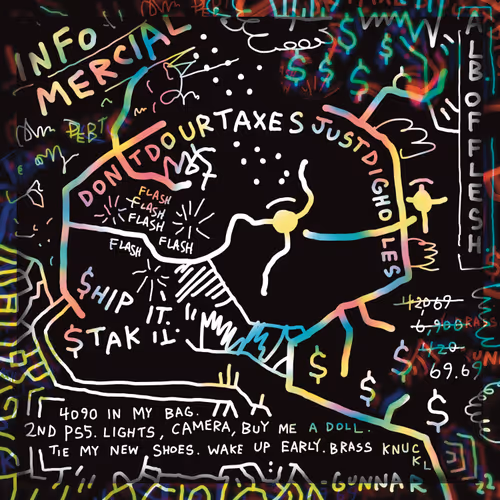 INFO
MERCIAL
DEBT
DON'T DO OUR TAXES JUST DIG HOLES
FLASH
FLASH
FLASH
FLASH
FLASH
$HIP IT.
$TAK IT.
ALB OF FLESH
42069
6,900
420
69.69
4090 IN MY BAG.
2ND PS5. LIGHTS, CAMERA, BUY ME A DOLL.
TIE MY NEW SHOES. WAKE UP EARLY. BRASS KNUC
KL
GUNNAR
22